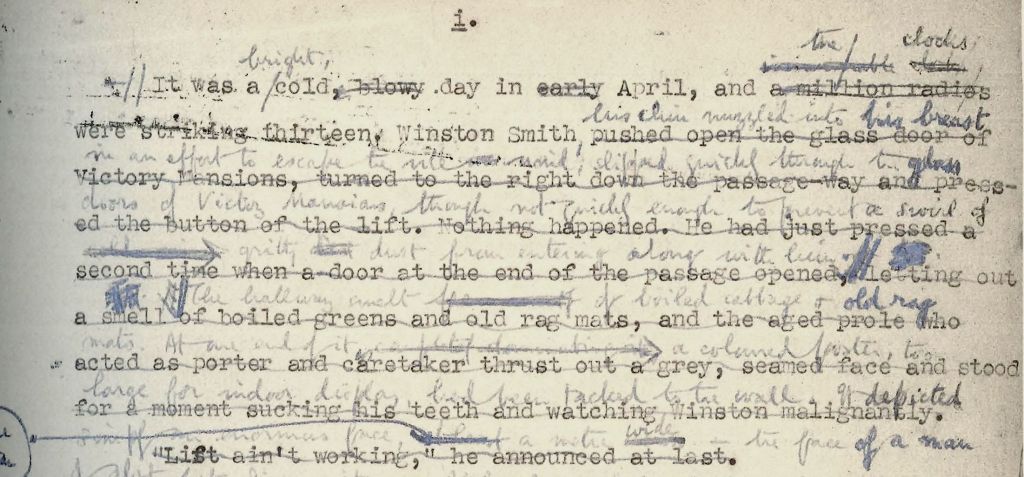 i.
the clocks
bright,
It was a cold, blowy day in early April, and a million radios
his chin nuzzled into his breast
were striking thirteen. Winston Smith pushed open the glass door of
in an effort to escape the vile wind, slipped quickly through the glass
Victory Mansions, turned to the right down the passage-way and press-
doors of Victory Mansions, though not quickly enough to prevent a swirl of
ed the button of the lift. Nothing happened. He had just pressed a
gritty dust from entering along with him.
second time when a door at the end of the passage opened, letting out
The hallway smelt of boiled cabbage & old rag
a smell of boiled greens and old rag mats, and the aged prole who
mats. At one end of it a coloured poster, too
acted as porter and caretaker thrust out a grey, seamed face and stood
large for indoor display, had been tacked to the wall. It depicted
for a moment sucking his teeth and watching Winston malignantly.
simply an enormous face, a metre wide – the face of a man
"Lift ain't working," he announced at last.